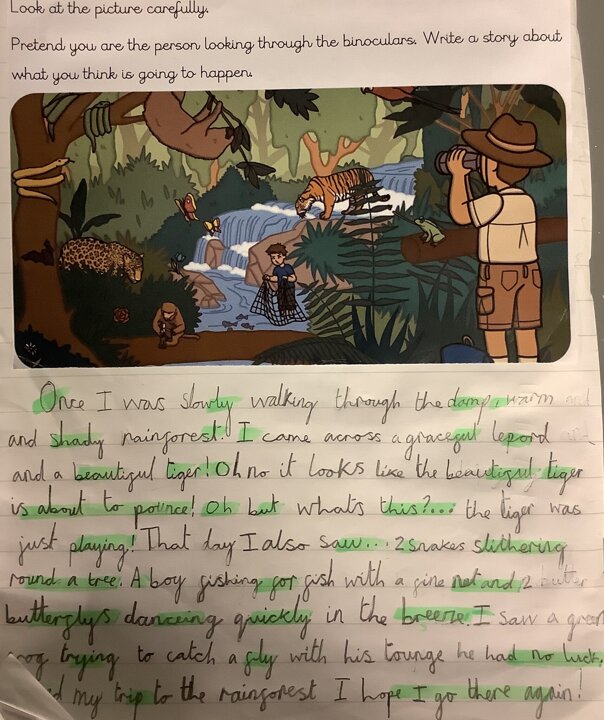 Look at the picture carefully.
Pretend you are the person looking through the binoculars. Write a story about
what you think is going to happen.
Once I was slowly walking through the damp, warm and
and shady rainforest. I came across a graceful lepord
and a beautiful tiger! Oh no it looks like the beautiful tiger
is about to pounce! Oh but whats this?... the tiger was
just playing! That day I also saw... 2 snakes slithering
round a tree. A boy fishing for fish with a fine net and 2 butter
butterflys danceing quickly in the breeze. I saw a green
frog trying to catch a fly with his tounge he had no luck,
my trip to the rainforest I hope I go there again!